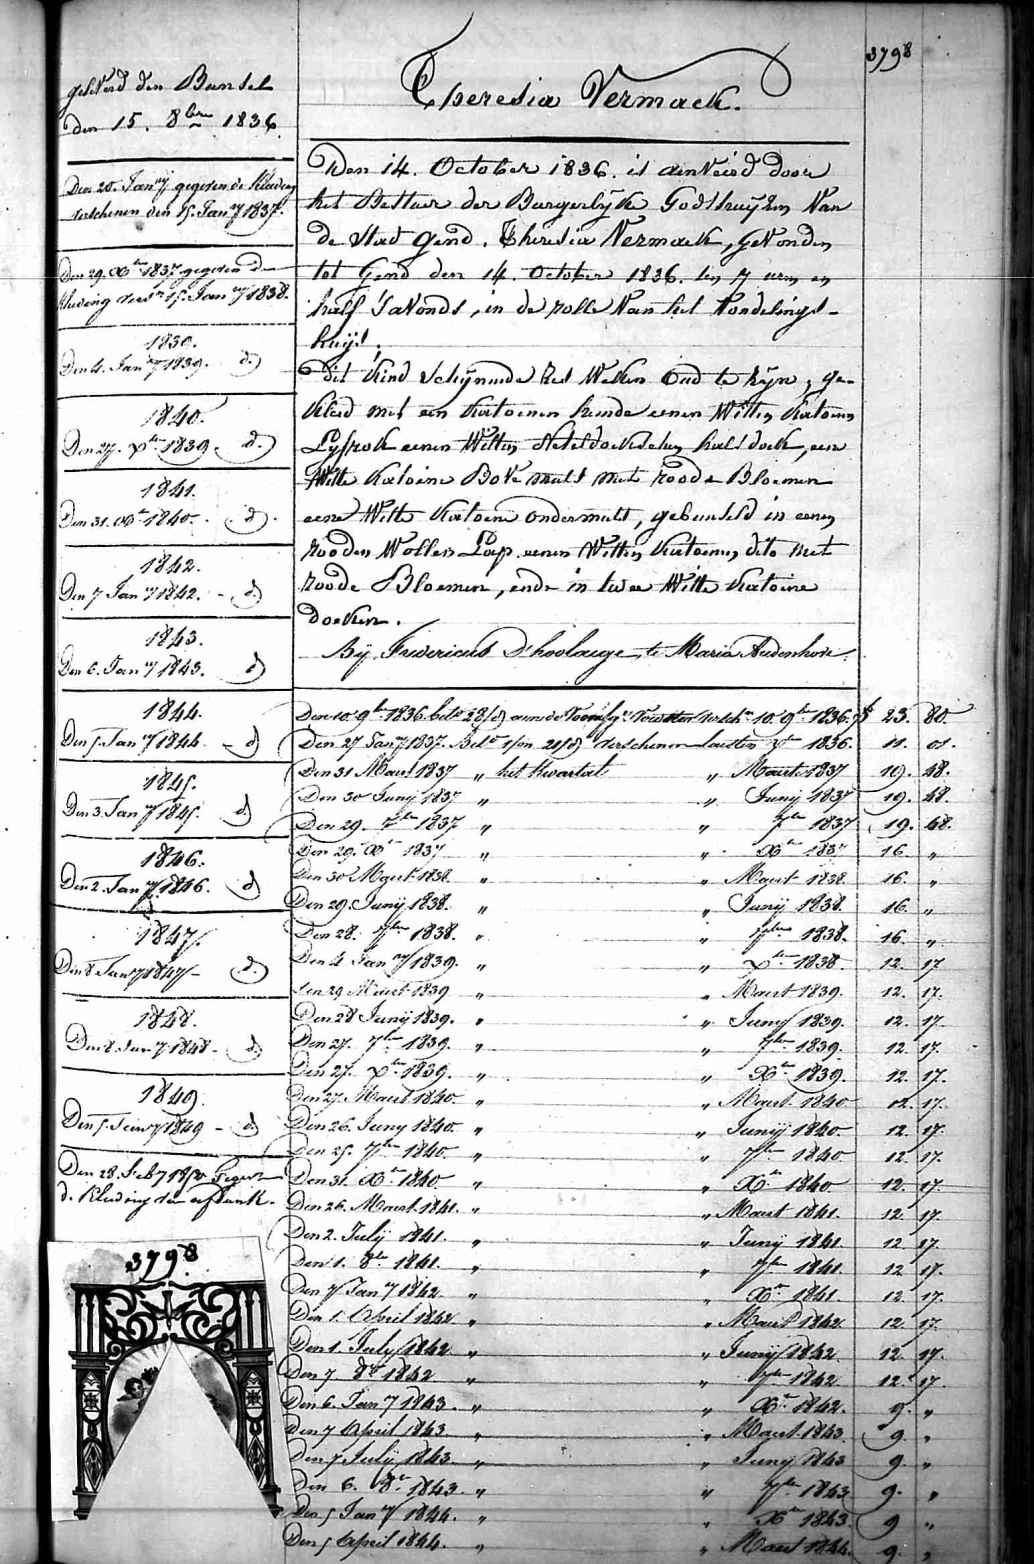 3798
geleverd den Bundel
den 15. 8bre 1836.
Den 20. Janry gegeven de Kleeding
verschenen den 15. Janry 1837.
Den 29. Xbr 1837 gegeven de
kleeding versn 15. Janry 1838.
1839.
Den 4. Janry 1839. d)
1840.
Den 27. Xbr 1839. d.)
1841.
Den 31. Xbr 1840. d)
1842.
Den 7 Janry 1842. - d)
1843.
Den 6. Janry 1843. d)
1844.
Den 5. Janry 1844 - d)
1845.
Den 3. Janry 1845. d)
1846.
Den 2. Janry 1846. d)
1847.
Den 8 Janry 1847 - d.)
1848.
Den 8. Janry 1848 - d.)
1849.
Den 5. Janry 1849 - d)
Den 28. Feby 1850 Gegeven
d. Kleeding
3798
Theresia Vermaek.
Den 14. October 1836. is aenveird door
het Bestuer der Burgerlijke Godshuijzen Van
de Stad Gend. Theresia Vermaek, gevonden
tot Gend den 14. October 1836. ten 7 uren en
half s'avonds, in de rolle van het Vondelings-
huijs.
Dit kind scheijnende zes Weken oud te zyn, ge-
kleed met een katoenen hemde eenen Witten katoenen
Lyfrok eenen Witten neteldoekschen halsdoek, een
Witte katoene Bove muts met roode Bloemen
eene Witte katoene ondermuts, gebunseld in eenen
rooden Wollen Lap eenen Witten katoenen dito met
roode Bloemen, ende in twee Witte katoene
doeken.
Bij Fredericus D'hoolaege, te Maria Audenhove.
Den 10. 9br 1836. bete 28/d) aen de Voorige Voester versch. 10. 9br 1836. 23. 80.
Den 27 Janry 1837. Bete 21/d) verschenen laesten Xbr 1836. 11. 01.
Den 31 Maert 1837 " het kwartael " Maert 1837 19. 48.
Den 30 Junij 1837 " " Junij 1837 19. 48.
Den 29. 7bre 1837. " " 7bre 1837 19. 48.
Den 29. Xbr 1837 " " Xbr 1837 16. "
Den 30 Maert 1838. " " Maert 1838. 16. "
Den 29. Junij 1838. " " Junij 1838. 16. "
Den 28. 7bre 1838. " " 7bre 1838. 16. "
Den 4 Janry 1839. " " Xbr 1838. 12. 17
Den 29 Maert 1839 " " Maert 1839. 12. 17.
Den 28 Junij 1839. " " Junij 1839. 12. 17.
Den 27. 7bre 1839. " " 7bre 1839. 12. 17.
Den 27. Xbr 1839. " " Xbr 1839. 12. 17.
Den 27 Maert 1840 " " Maert 1840 12. 17.
Den 26. Juny 1840. " " Junij 1840. 12. 17.
Den 25. 7bre 1840 " " 7bre 1840 12. 17.
Den 31. Xbr 1840. " " Xbr 1840 12. 17.
Den 26. Maert 1841. " " Maert 1841 12. 17.
Den 2. Julij 1841. " " Junij 1841. 12 17.
Den 1. 8bre 1841. " " 7bre 1841. 12 17.
Den 7 Janry 1842 " " Xbr 1841. 12. 17.
Den 1. April 1842 " " Maert 1842 12. 17.
Den 1. July 1842 " " Junij 1842 12. 17.
Den 7 8br 1842 " " 7bre 1842 12. 17
Den 6. Janry 1843. " " Xbr 1842. 9. "
Den 7 April 1843. " " Maert 1843. 9. "
Den 7 Julij 1843 " " Junij 1843 9. "
Den 6. 8br 1843. " " 7bre 1843 9. "
Den 5 Janry 1844. " " Xbr 1843. 9 "
Den 5 April 1844. " " Maert 1844. 9. "